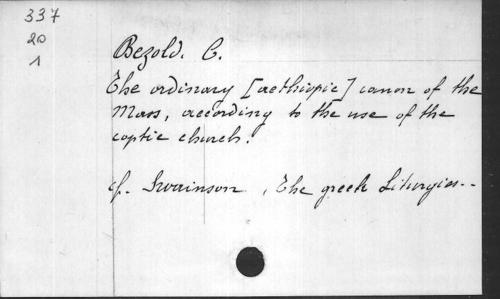 337
20
1
Bezold. C.
The ordinary [aethiopic] canon of the
Mass, according to the use of the
coptic church.
cf. Swainson, The greek Liturgies..